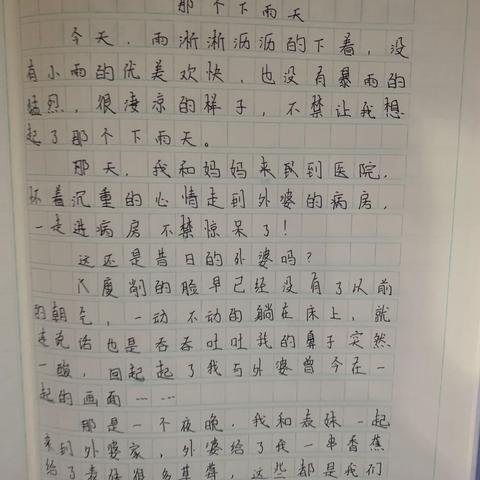 那个下雨天
今天，雨淅淅沥沥的下着，没
有小雨的优美欢快，也没有暴雨的
猛烈，很凄凉的样子，不禁让我想
起了那个下雨天。
那天，我和妈妈来到到医院，
怀着沉重的心情走到外婆的病房，
一走进病房不禁惊呆了！
这还是昔日的外婆吗？
度削的脸早已经没有了以前
的朝气，一动不动的躺在床上，就
连说话也是吞吞吐吐我的鼻子突然
一酸，回起起了我与外婆曾今在一
起的画面……
那是一个夜晚，我和表妹一起
来到外婆家，外婆给了我一串香蕉
给了表妹很多草莓，这些都是我们